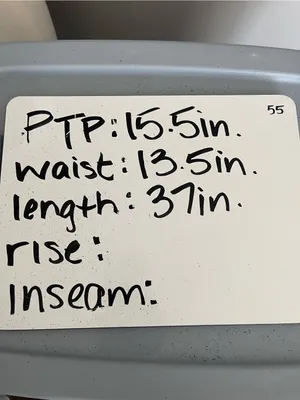 55
PTP: 15.5in.
waist: 13.5in.
length: 37in.
rise:
inseam: